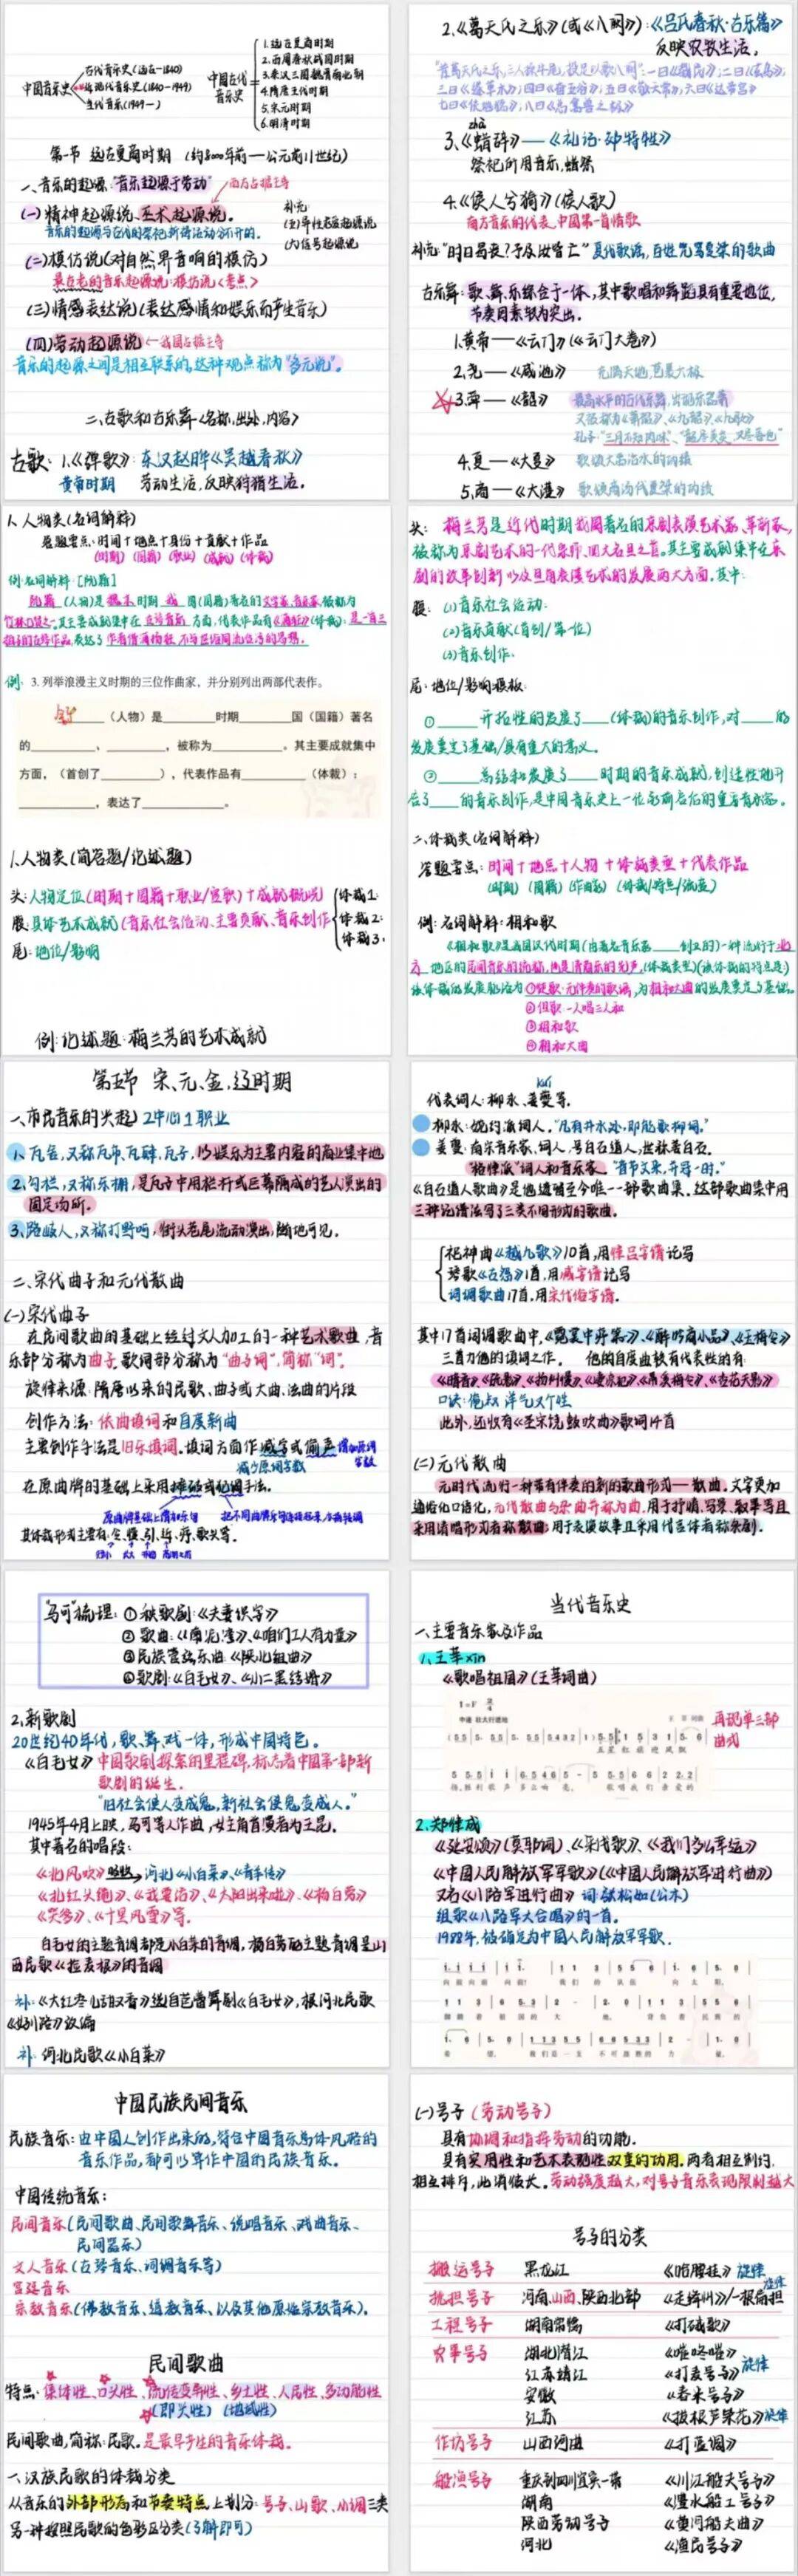 中国音乐史
古代音乐史(远古-1840)
近现代音乐史(1840-1949)
当代音乐(1949-)
中国古代音乐史
1.远古夏商时期
2.西周春秋战国时期
3.秦汉三国魏晋南北朝
4.隋唐五代时期
5.宋元时期
6.明清时期
第一节 远古夏商时期 (约8000年前—公元前11世纪)
一、音乐的起源:"音乐起源于劳动"
(一)精神起源说、巫术起源说。
西方占据主导
音乐的起源与古代的祭祀祈祷活动分不开的。
补充:
(五)异性求爱起源说
(六)信号起源说
(二)模仿说(对自然界音响的模仿)
最古老的音乐起源说:模仿说<考点>
(三)情感表达说(表达感情和娱乐而产生音乐)
(四)劳动起源说←我国占据主导
音乐的起源之间是相互联系的,这种观点称为"多元说"。
二、古歌和古乐舞<名称,出处,内容>
古歌: 1.《弹歌》: 东汉赵晔《吴越春秋》
黄帝时期 劳动生活,反映狩猎生活。
2.《葛天氏之乐》(或《八阕》):《吕氏春秋·古乐篇》
反映农牧生活。
3.《蜡辞》——《礼记·郊特牲》
zhà
祭祀所用音乐,蜡祭
4.《侯人兮猗》(侯人歌)
南方音乐的代表,中国第一首情歌
补充:"时日曷丧?予及汝皆亡" 夏代歌谣,百姓咒骂夏桀的歌曲
古乐舞:歌、舞、乐综合于一体,其中歌唱和舞蹈具有重要地位,
节奏因素较为突出。
1.黄帝——《云门》(《云门大卷》)
2.尧——《咸池》
3.舜——《韶》
最高水平的古代乐舞,
又被称为《箫韶》、《九韶》、《九歌》
孔子:"三月不知肉味"、
4.夏——《大夏》 歌颂大禹治水的功绩
5.商——《大濩》 歌颂商汤伐夏桀的功绩
1.人物类(名词解释)
答题要点:时间+地点+身份+贡献+作品
(时期) (国籍) (职业) (成就) (体裁)
例:名词解释:[阮籍]
例: 3. 列举浪漫主义时期的三位作曲家,并分别列出两部代表作。
(人物)是 时期 国(国籍)著名
的 、 ,被称为 。其主要成就集中
方面,(首创了 ),代表作品有 (体裁):
,表达了 。
1.人物类(简答题/论述题)
头:人物定位(时期+国籍+职业/官职)+成就概况
腹:具体艺术成就(音乐社会活动、主要贡献、音乐创作
体裁1:
体裁2:
体裁3:
尾:地位/影响
例:论述题:梅兰芳的艺术成就
头: 梅兰芳是近代时期我国著名的京剧表演艺术家、革新家,
被称为京剧艺术的一代宗师、四大名旦之首。其主要成就集中在京
剧的改革创新以及旦角表演艺术的发展两大方面.其中:
腹: (1)音乐社会活动:
(2)音乐贡献(首创/第一位)
(3)音乐创作.
尾:地位/影响模板:
① 开拓性的发展了 (体裁)的音乐创作,对 的
发展奠定了基础/具有重大的意义。
② 总结和发展了 时期的音乐成就,创造性地开
的音乐创作,是中国音乐史上一位承前启后的重要音乐家。
二、体裁类(名词解释)
答题要点:时间+地点+人物+体裁类型+代表作品
例:名词解释:相和歌
②但歌:一人唱三人和
③相和歌
④相和大曲
第五节 宋、元、金,辽时期
一、市民音乐的兴起) 2中心1职业
1.瓦舍,又称瓦市、瓦肆、瓦子,以娱乐为主要内容的商业集中地
2.勾栏,又称乐棚,是瓦子中用栏杆或巨幕隔成的艺人演出的
固定场所。
3.路岐人,又称打野呵,街头巷尾流动演出,随地可见。
二、宋代曲子和元代散曲
(一)宋代曲子
在民间歌曲的基础上经过文人加工的一种艺术歌曲,音
乐部分称为曲子,歌词部分称为"曲子词",简称"词"。
旋律来源:隋唐以来的民歌、曲子或大曲、法曲的片段
创作方法:依曲填词和自度新曲
主要创作手法是旧乐填词,填词方面作减字或偷声
减少原词字数
在原曲牌的基础上采用摊破或犯调手法。
其体裁形式主要有:令、慢、引、近、序、歌头等。
代表词人:柳永、姜夔等.
kuí
柳永:婉约派词人,"凡有井水处,即能歌柳词。"
姜夔:南宋音乐家、词人,号白石道人,世称姜白石.
"格律派"词人和音乐家
《白石道人歌曲》是他遗留至今唯一一部歌曲集.这部歌曲集中用
三种记谱法写了三类不同形式的歌曲。
祀神曲《越九歌》10首,用律吕字谱记写
琴歌《古怨》1首,用减字谱记写
词调歌曲17首,用宋代俗字谱.
其中17首词调歌曲中,《霓裳中序第一》、《醉吟商小品》、《玉梅令》
三首为他的填词之作. 他的自度曲较有代表性的有:
此外,还收有《圣宋铙歌鼓吹曲》歌词14首
(二)元代散曲
元时代流行一种带有伴奏的新的歌曲形式——散曲.文字更加
通俗化口语化,元代散曲与杂曲并称为曲.用于抒情、写景、叙事等且
采用清唱形式者称散曲;用于表演故事且采用代言体者称杂剧.
"马可"梳理: ① 秧歌剧:《夫妻识字》
② 歌曲:《南泥湾》、《咱们工人有力量》
③民族管弦乐曲《陕北组曲》
④歌剧:《白毛女》、《小二黑结婚》
2.新歌剧
20世纪40年代,歌、舞、戏一体,形成中国特色。
《白毛女》中国歌剧探索的里程碑,标志着中国第一部新
歌剧的诞生。
"旧社会使人变成鬼,新社会使鬼变成人。"
1945年4月上映,马可等人作曲,女主角首演者为王昆。
其中著名的唱段:
《北风吹》 河北《小白菜》、《青羊传》
《扎红头绳》、《我要活》、《太阳出来啦》、《杨白劳》
《哭爹》、《十里风雪》等.
白毛女的主题音调都是小白菜的音调,杨白劳的主题音调是山
西民歌《捡麦根》的音调
补:《大红枣儿甜又香》选自芭蕾舞剧《白毛女》,根河北民歌
补:河北民歌《小白菜》
当代音乐史
一、主要音乐家及作品
1.王莘xīn
《歌唱祖国》(王莘词曲)
1=F 2/4
中速 壮大行进地 王莘 词曲
再现单三部曲式
五星红旗迎风飘
扬,胜利歌声多么响亮, 歌唱我们亲爱的
2.郑律成
《延安颂》(莫耶词)、《采伐歌》、《我们多么幸运》
《中国人民解放军军歌》(《中国人民解放军进行曲》)
又名《八路军进行曲》 词:张松如(公木)
组歌《八路军大合唱》的一首。
1988年,被确定为中国人民解放军军歌.
向前向前向前! 我们的队伍 向太阳,
脚踏着祖国的大地, 背负着民族的
希望, 我们是一支不可战胜的力量。
中国民族民间音乐
民族音乐:由中国人创作出来的,符合中国音乐总体风格的
音乐作品,都可以算作中国的民族音乐。
中国传统音乐:
民间音乐(民间歌曲、民间歌舞音乐、说唱音乐、戏曲音乐、
民间器乐)
文人音乐(古琴音乐、词调音乐等)
宫廷音乐
宗教音乐(佛教音乐、道教音乐、以及其他原始宗教音乐).
民间歌曲
特点:集体性、口头性、流传变异性、乡土性、人民性、多功能性
(即兴性) (地域性)
民间歌曲,简称:民歌.是最早产生的音乐体裁。
一、汉族民歌的体裁分类
从音乐的外部形态和节奏特点上划分:号子、山歌、小调三类
另一种按照民歌的色彩区分类(了解即可)
(一)号子(劳动号子)
具有协调和指挥劳动的功能.
具有实用性和艺术表现性双重的功用.两者相互制约.
相互排斥,此消彼长.劳动强度越大,对号子音乐表现限制越大
号子的分类
搬运号子 黑龙江 《哈腰挂》 旋律
挑担号子 河南、山西、陕西北部 《走绛州》/一根扁担 旋律
工程号子 湖南常德 《打硪歌》
农事号子 湖北潜江 《嗺咚嗺》
江苏靖江 《打麦号子》 旋律
安徽 《舂米号子》
江苏 《拔根芦柴花》 旋律
作坊号子 山西河曲 《打蓝调》
船渔号子 重庆到四川宜宾一带 《川江船夫号子》
湖南 《澧水船工号子》
陕西劳动号子 《黄河船夫曲》
河北 《渔民号子》